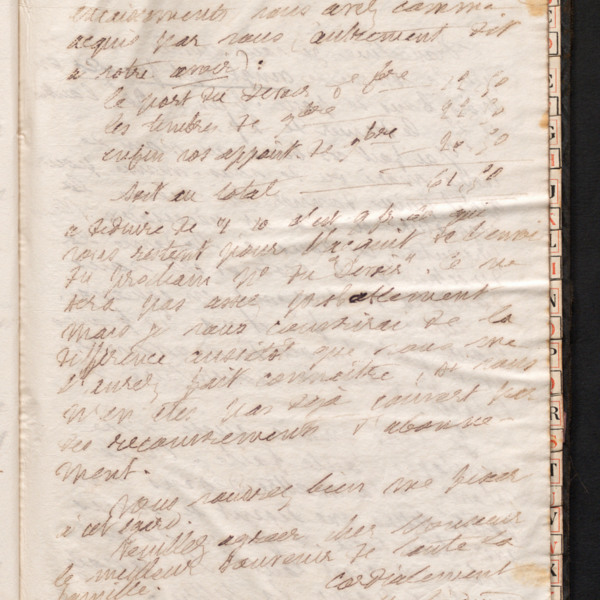 vous avez comme
acquis par nous (autrement dit
à notre avoir) :
le port du Devoir de
les timbres de 9bre
enfin vos appoint de 9bre
soit au total 61,
à déduire de
vous restent pour l'acquit de l'envoi
du prochain No du "Devoir". Ce ne
sera pas assez probablement
mais je vous couvrirai de la
différence aussitôt que vous me
l'aurez fait connaître, si vous
n'en êtes pas déjà couvert par
des recouvrements d'abonne-
ment.
Vous voudrez bien me fixer
à cet égard.
Veuillez agréer cher Monsieur
le meilleur souvenir de toute la
famille.
cordialement